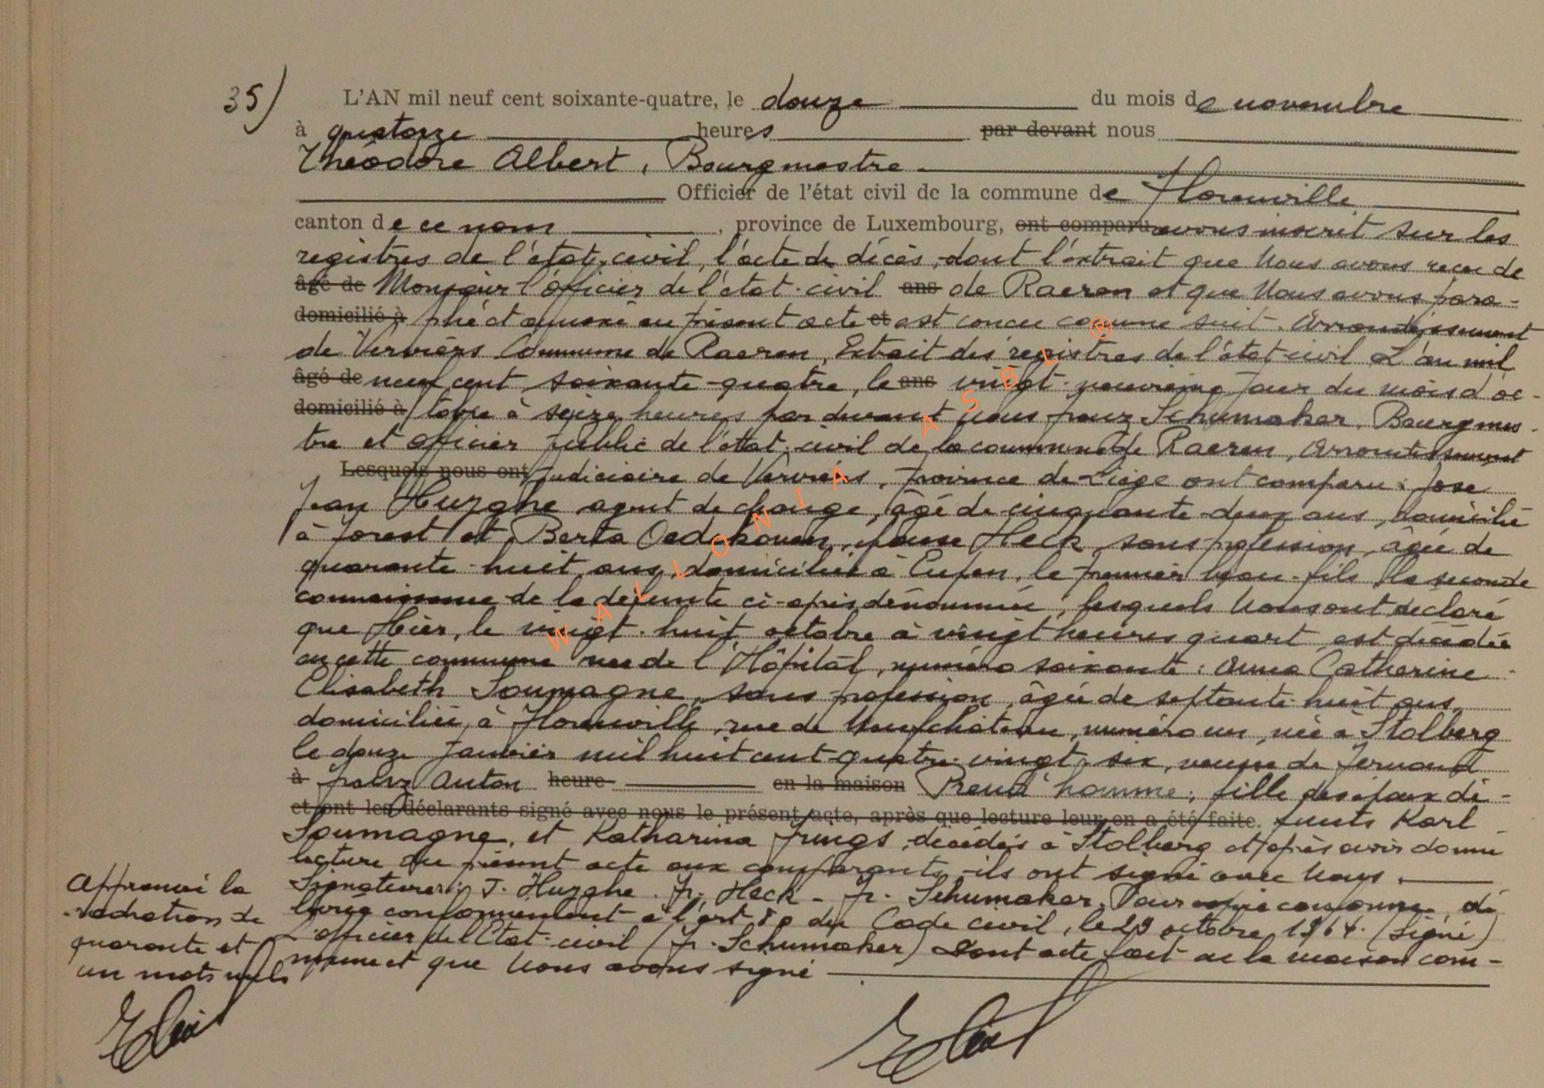 35)
L'AN mil neuf cent soixante-quatre, le douze du mois de novembre
à quatorze heures par devant nous
Théodore Albert, Bourgmestre
Officier de l'état civil de la commune de Florenville
canton de ce nom, province de Luxembourg, ont comparu avons inscrit sur les
registres de l'état civil, l'acte de décès, dont l'extrait que Nous avons recu de
âgé de Monsieur l'officier de l'état-civil ans de Raeren et que Nous avons para-
domicilié à phé et annexé au présent acte et est concu comme suit. Arrondissement
de Verviers Commune de Raeren, Extrait des registres de l'état-civil L'an mil
âgé de neuf cent soixante-quatre, le ans vingt-neuvième jour du mois d'oc-
domicilié à tobre à seize heures par devant Nous franz Schumaker, Bourgmes-
tre et officier public de l'état-civil de la commune de Raeren, Arrondissement
Lesquels nous ont judiciaire de Verviers, province de Liège ont comparu: José
Jean Huzghe agent de change, âgé de cinquante-deux ans, domicilié
à forest et Berta Oedekoven, épouse Heck, sans profession, âgée de
quarante-huit ans, domiciliée à Eupen, le premier beau-fils, la seconde
connaissance de la défunte ci-après dénommée, lesquels Nous ont déclaré
que Hier, le vingt-huit octobre à vingt heures quart est décédée
en cette commune rue de l'Hôpital, numéro soixante: Anna Catherine
Elisabeth Soumagne, sans profession, âgée de septante-huit ans,
domiciliée à Florenville, rue de Neufchâteau, numéro un, née à Stolberg
le douze Janvier mil huit cent quatre-vingt-six, veuve de fernand
à franz Anton heure en la maison Preud'homme, fille des époux dé-
et ont les déclarants signé avec nous le présent acte, après que lecture leur en a été faite. funts Karl
Soumagne, et Katharina Jungs, décédés à Stolberg et après avoir donné
lecture du présent acte aux comparants, ils ont signé avec Nous.
Signatures: J. Huzghe. fr. Heck - fr. Schumaker. Pour copie conforme, dé
livrée conformément à l'art 80 du Code civil, le 29 octobre 1964. (signé)
L'officier de l'Etat-civil (fr. Schumaker) Dont acte fait en la maison com-
mune et que Nous avons signé
Approuvé la
radiation de
quarante et
un mots nuls
WALLONIA ASBL ®